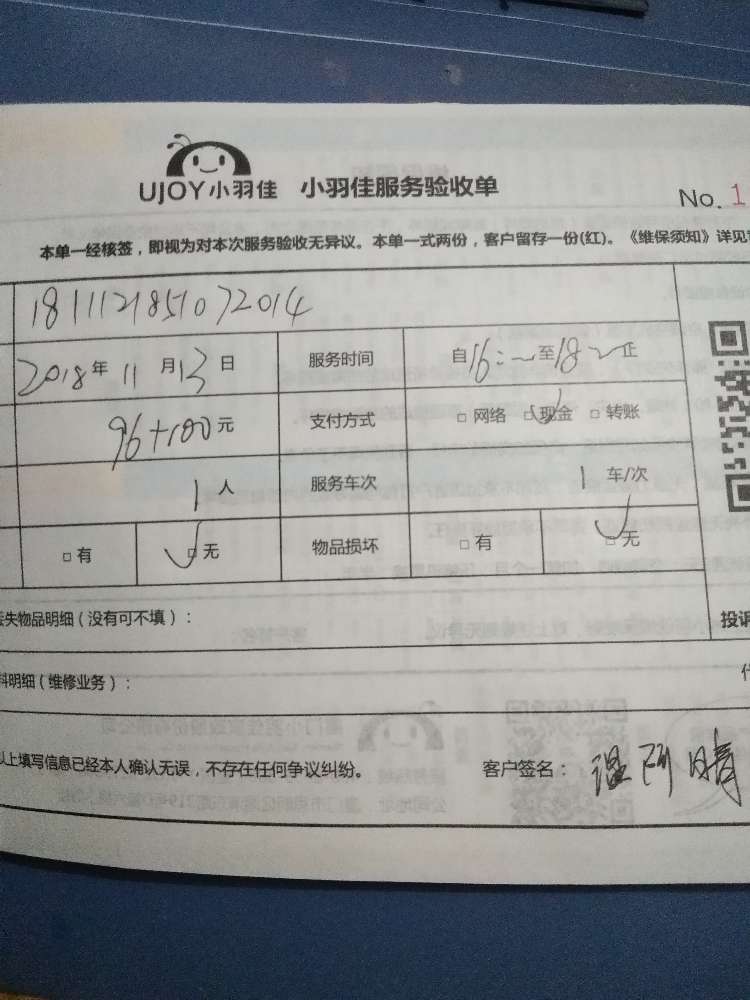 UJOY小羽佳 小羽佳服务验收单
No. 1
本单一经核签，即视为对本次服务验收无异议。本单一式两份，客户留存一份(红)。《维保须知》详见
1811121851072014
2018年 11 月 13 日 服务时间 自16:~至18~止
96+100元 支付方式 □ 网络 □ 现金 □ 转账
1人 服务车次 1 车/次
□ 有 □ 无 物品损坏 □ 有 □ 无
丢失物品明细（没有可不填）： 投诉
料明细（维修业务）：
以上填写信息已经本人确认无误，不存在任何争议纠纷。 客户签名：